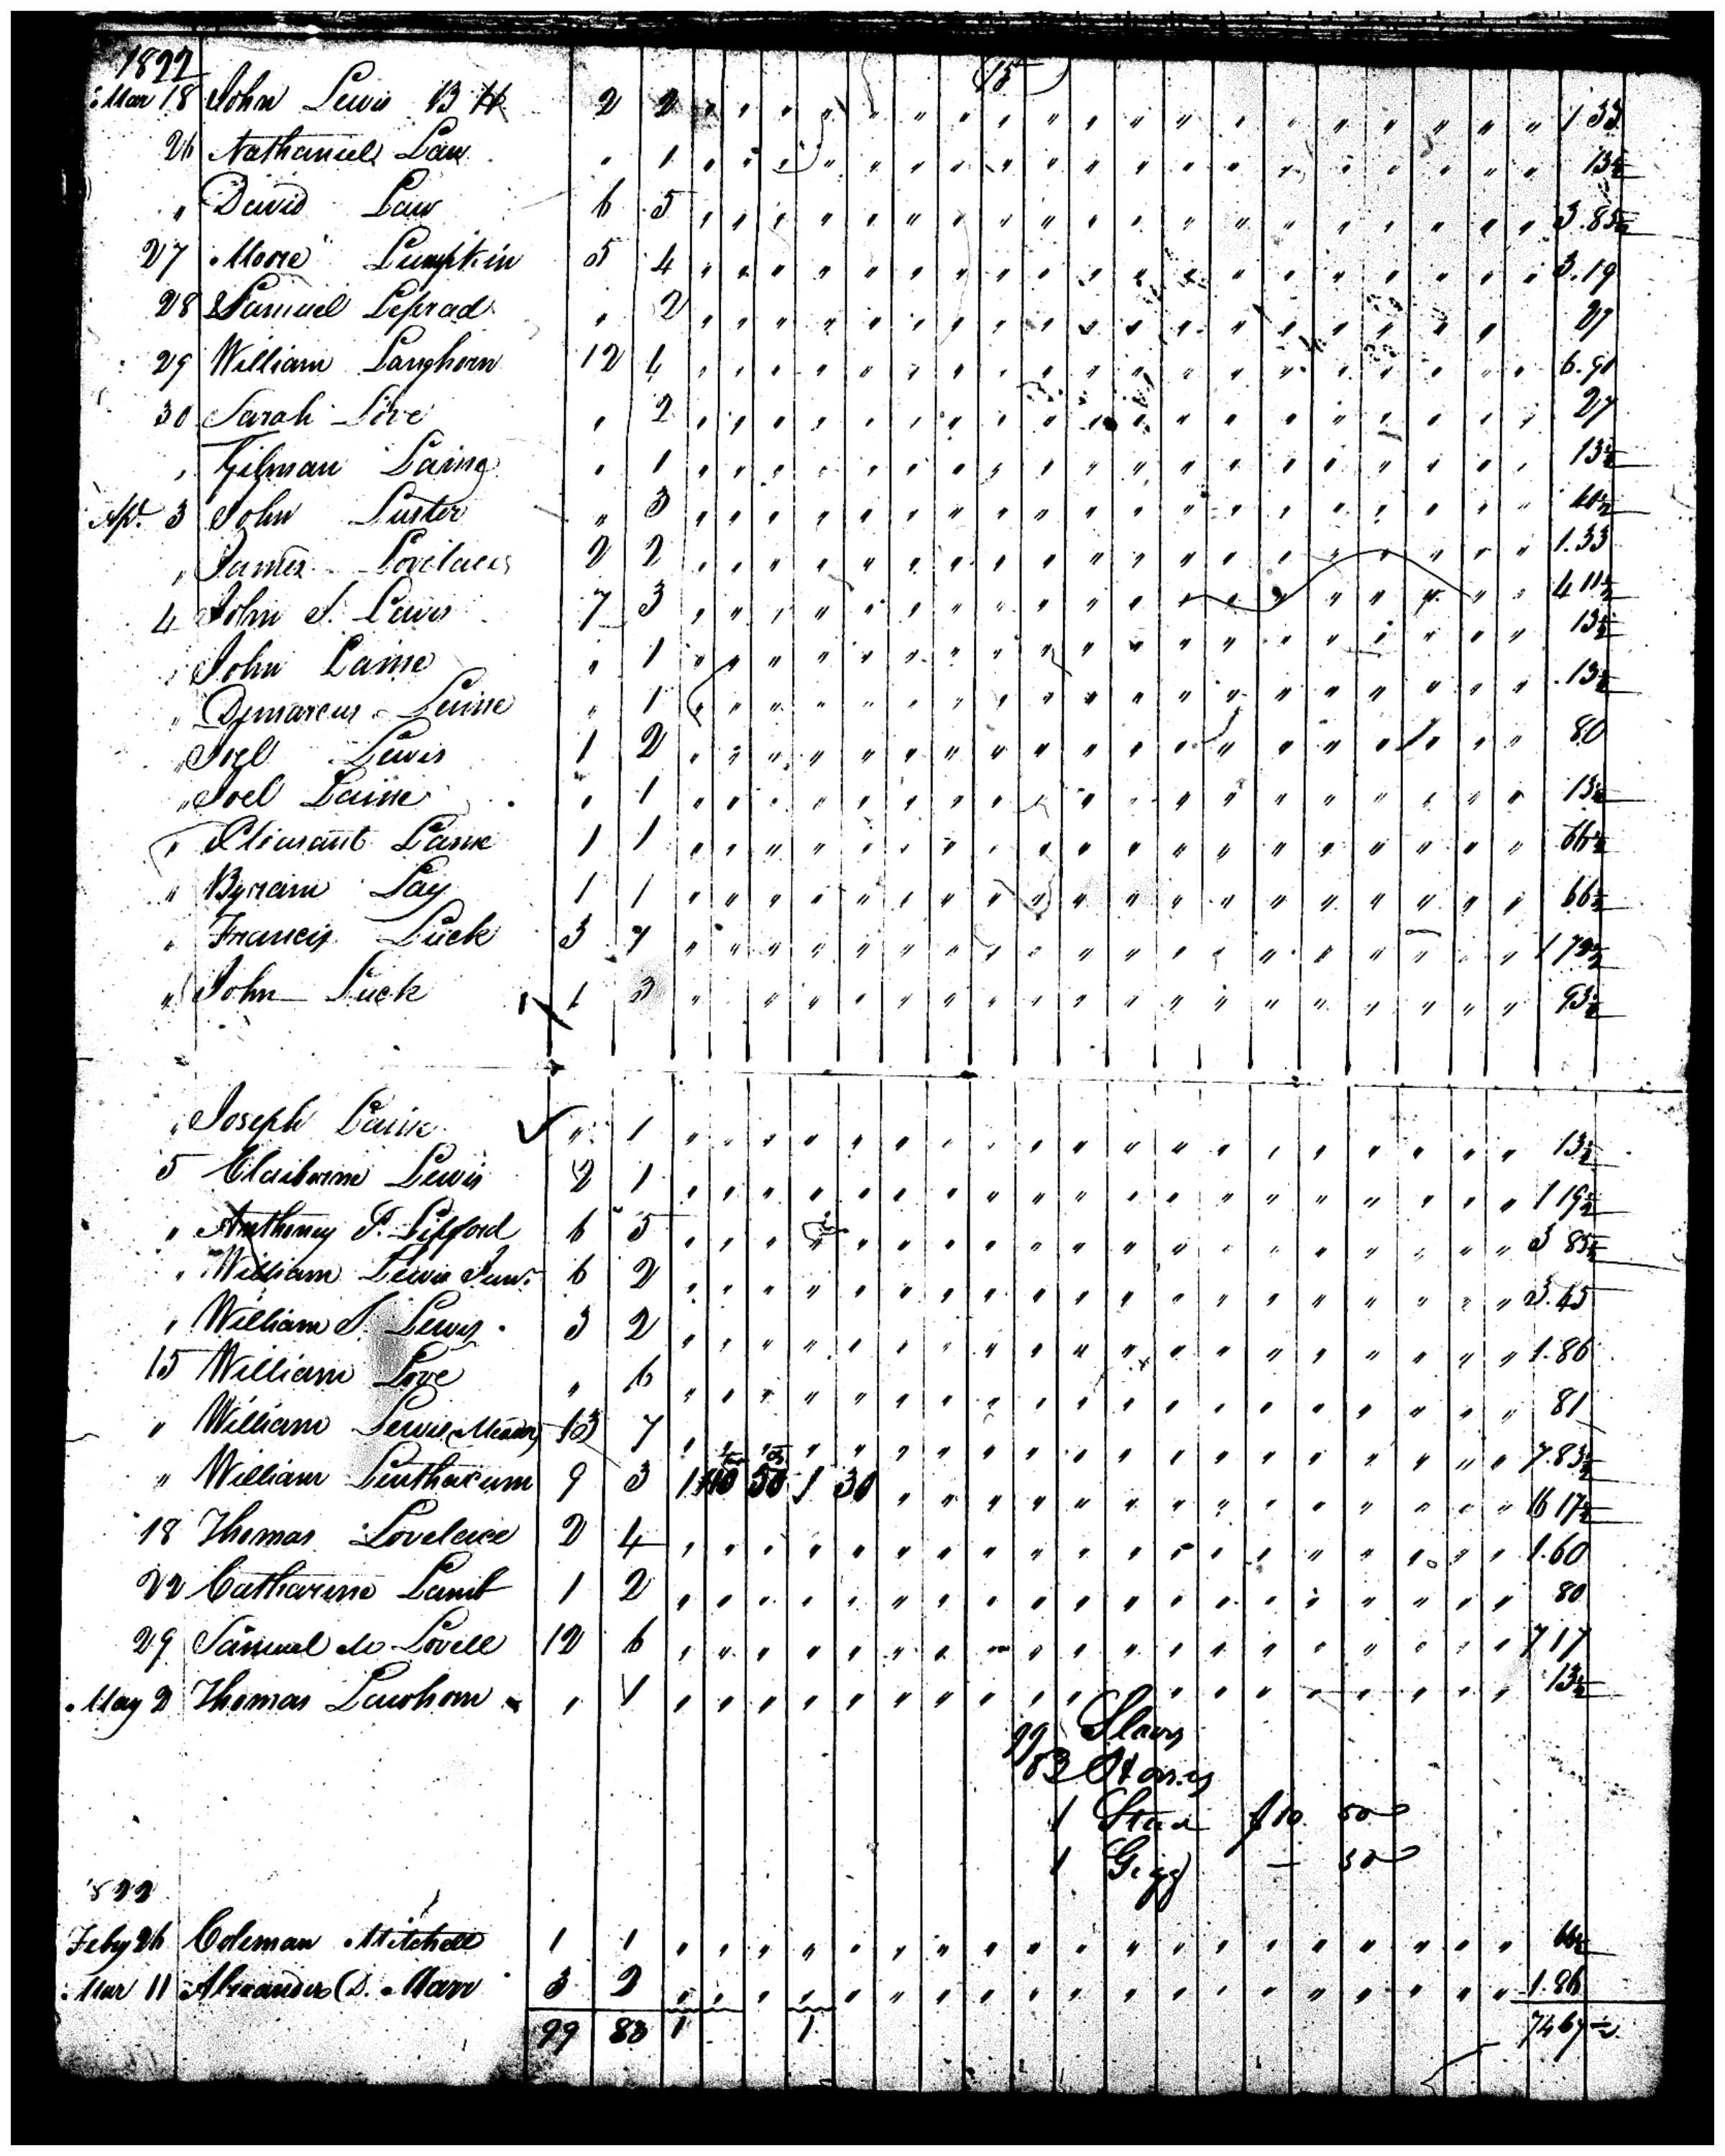 15
1822
Mar 18 John Lewis B H 2 2 " " " " " " " " " " " " " " " " " " " " 1 33
26 Nathaniel Law " 1 " " " " " " " " " " " " " " " " " " " " 13½
" David Law 6 5 " " " " " " " " " " " " " " " " " " " " 3.85½
27 Moore Lumpkin 5 4 " " " " " " " " " " " " " " " " " " " " 3.19
28 Samuel " 2 " " " " " " " " " " " " " " " " " " " 27
29 William Langhorn 12 4 " " " " " " " " " " " " " " " " " " " " 6.90
30 Sarah Love " 2 " " " " " " " " " " " " " " " " " " " " 27
" Tilman Laine " 1 " " " " " " " " " " " " " " " " " " " " 13½
Apl. 3 John Luster " 3 " " " " " " " " " " " " " " " " " " " " 40½
" James Lovelace 2 2 " " " " " " " " " " " " " " " " " " " " 1.33
4 John S. Lewis 7 3 " " " " " " " " " " " " " " " " " " " " 4 11½
" John Laine " 1 " " " " " " " " " " " " " " " " " " " " 13½
" Dymarcus Laine " 1 " " " " " " " " " " " " " " " " " " " " 13½
" Joel Lewis 1 2 " " " " " " " " " " " " " " " " " " " " 80
" Joel Laine " 1 " " " " " " " " " " " " " " " " " " " " 13½
" Pleasant Laine 1 1 " " " " " " " " " " " " " " " " " " " " 66½
" Byram Lay 1 1 " " " " " " " " " " " " " " " " " " " " 66½
" Francis Luck 3 1 " " " " " " " " " " " " " " " " " " " " 1 72½
" John Luck 1 3 " " " " " " " " " " " " " " " " " " " 93½
" Joseph Laine " 1 " " " " " " " " " " " " " " " " " " " " 13½
5 Claiborne Lewis 2 1 " " " " " " " " " " " " " " " " " " " " 1 19½
" Anthony P. Lipford 6 5 " " " " " " " " " " " " " " " " " " " " 3 85½
" William Lewis Junr 6 2 " " " " " " " " " " " " " " " " " " " " 3.45
" William S. Lewis 3 2 " " " " " " " " " " " " " " " " " " " " 1.86
15 William Love " 6 " " " " " " " " " " " " " " " " " " " " 81
" William Lewis 13 7 " " " " " " " " " " " " " " " " " " " " 7.83½
" William Linthacum 9 3 1 $10 50 1 30 " " " " " " " " " " " " " " " 16 17½
18 Thomas Lovelace 2 4 " " " " " " " " " " " " " " " " " " " " 1.60
22 Catharine Lamb 1 2 " " " " " " " " " " " " " " " " " " " " 80
29 Samuel M Lovell 12 6 " " " " " " " " " " " " " " " " " " " " 7 17
May 2 Thomas Lawhorn " 1 " " " " " " " " " " " " " " " " " " " 13½
99 Slaves
83 Horses
1 Stud $10 50
1 Gigg — 30
1822
Feby 26 Coleman Mitchell 1 1 " " " " " " " " " " " " " " " " " " " " 66½
Mar 11 Alexander D. Marr 3 2 " " " " " " " " " " " " " " " " " " " " 1.86
99 83 1 1 74 67½